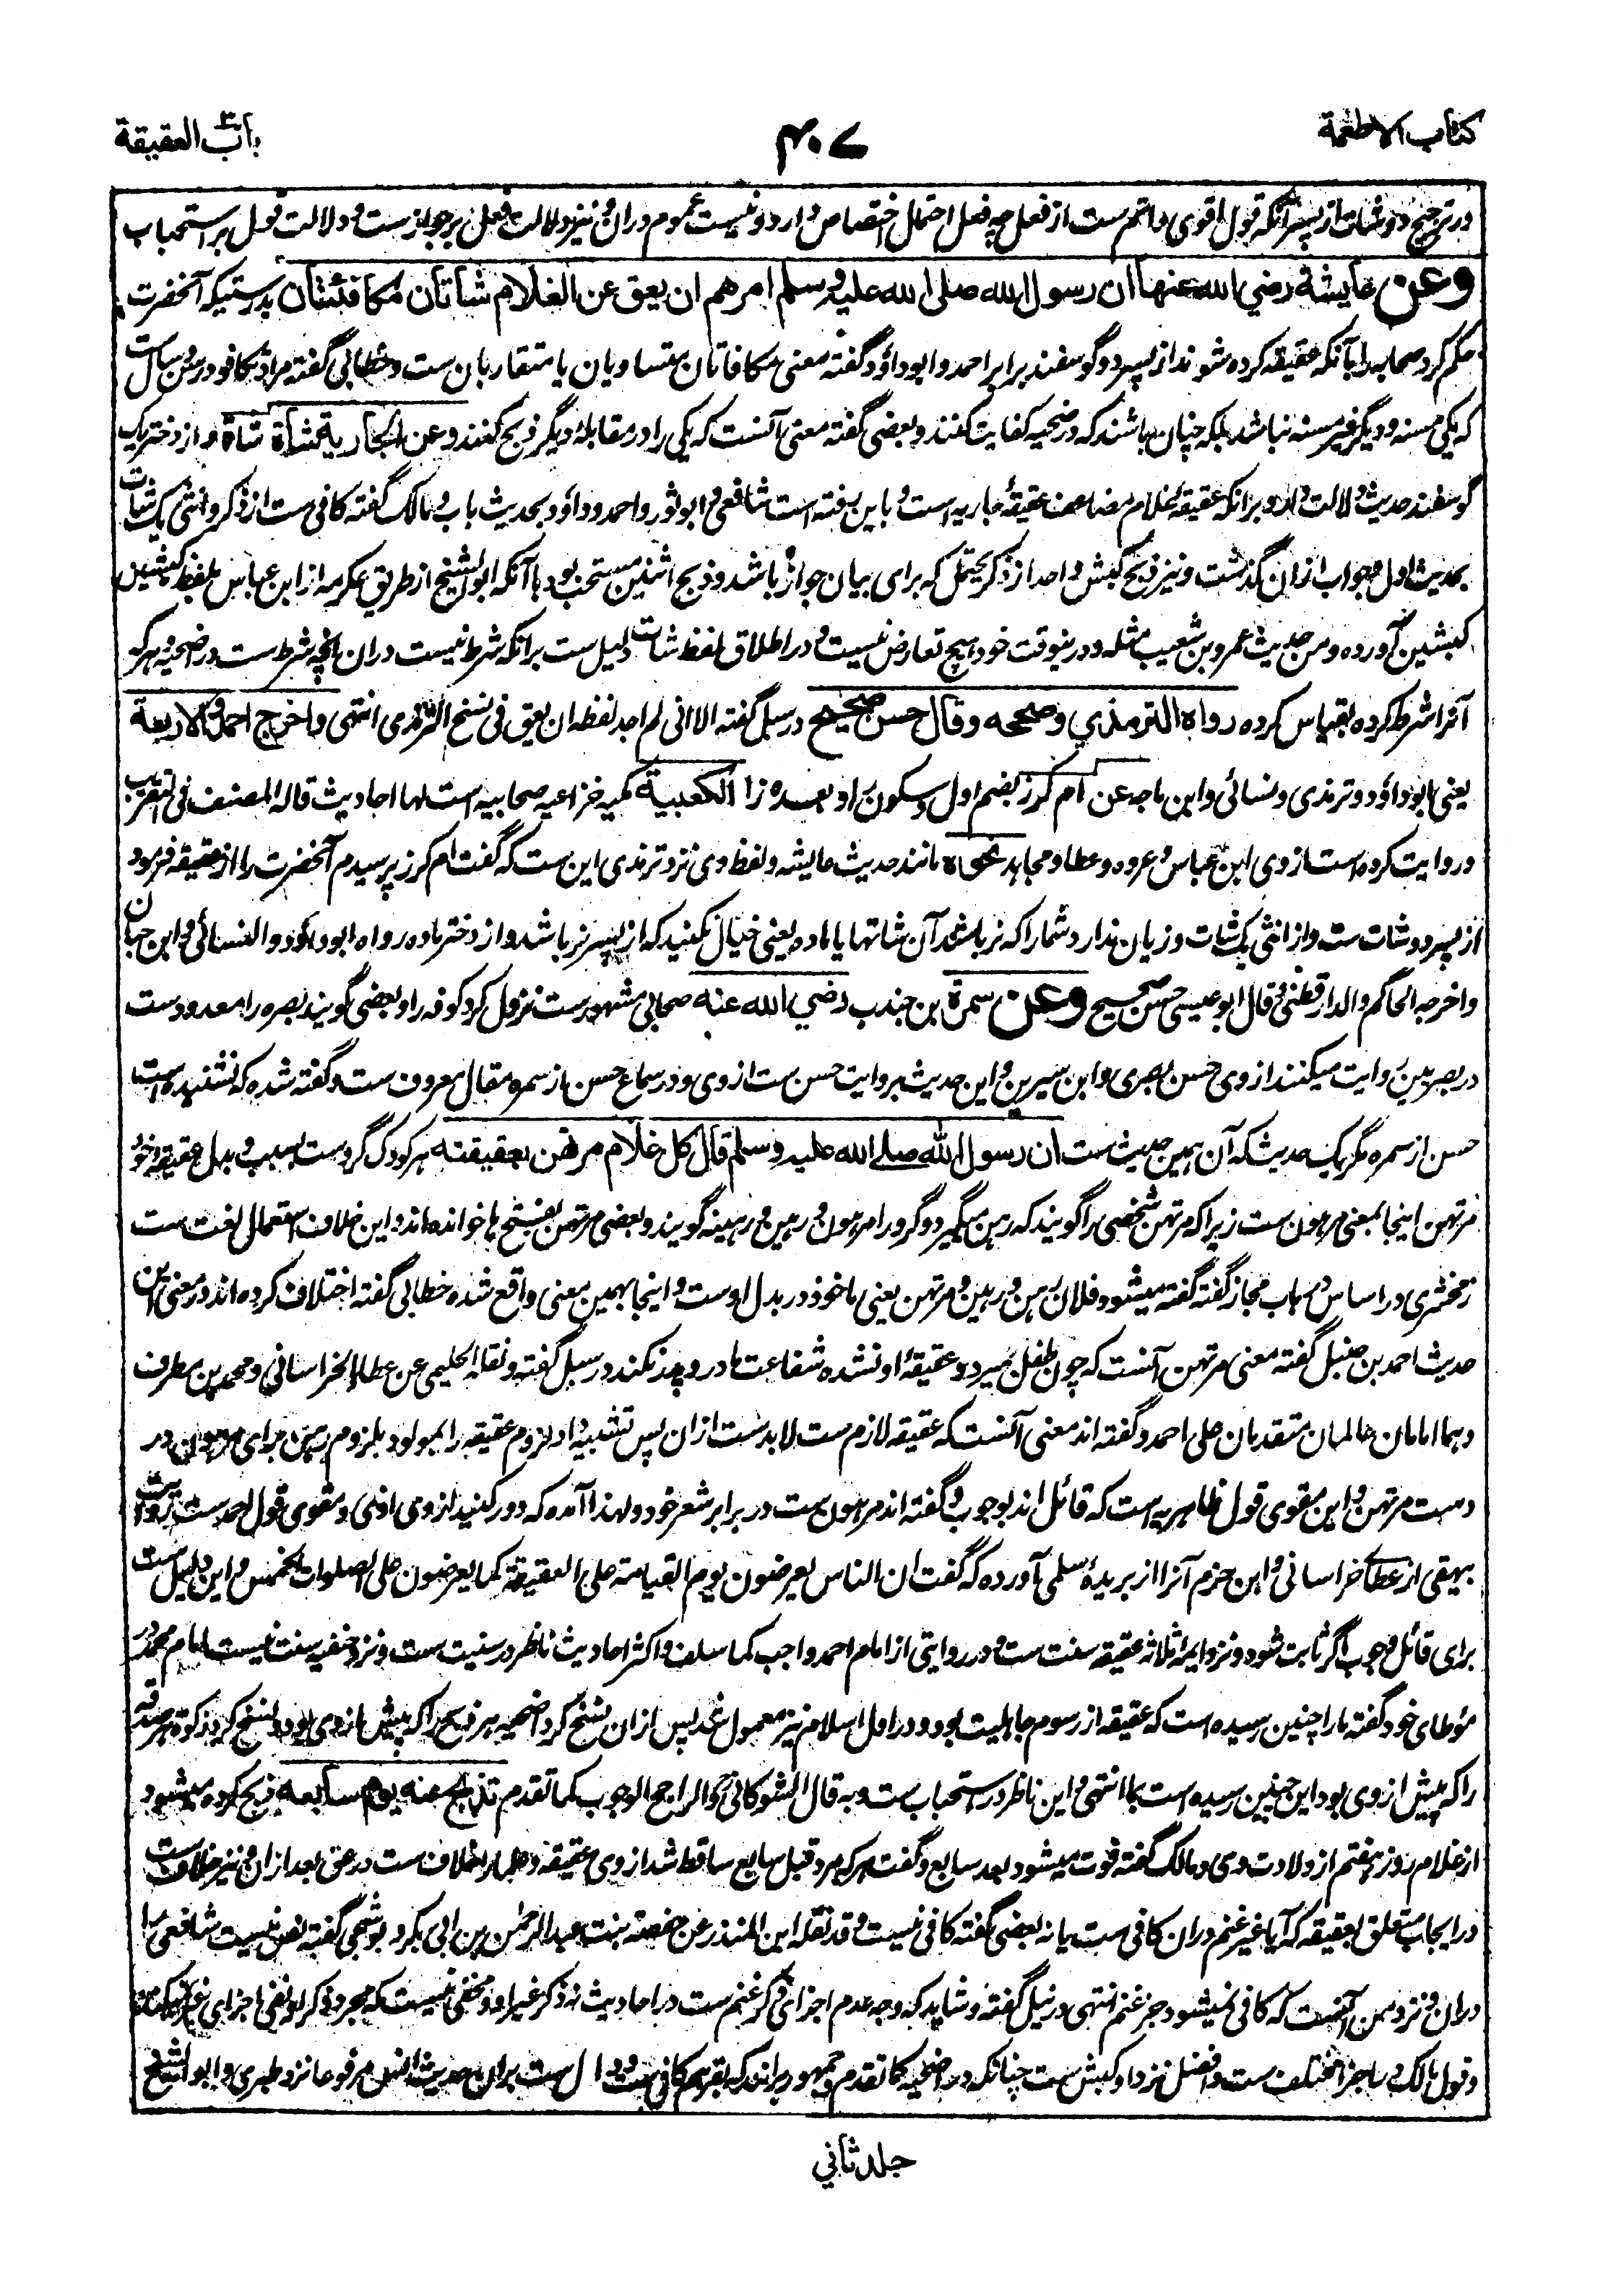 كتاب الاطعمة
۴۰۷
باب العقيقة
در ترجیح دو شات از پسر آنکه قول اقوی و اتم ست از فعل چه فعل احتمال اختصاص دارد و نیست عموم دران و نیز دلالت فعل بر جواز ست و دلالت قول بر استحباب
وعن عايشة رضي الله عنها ان رسول الله صلى الله عليه وسلم امرهم ان يعق عن الغلام شاتان مكافئتان بدرستیکه آنحضرت
حکم کرد صحابه را بآنکه عقیقه کرده شوند از پسر دو گوسفند برابر احمد و ابو داؤد گفته معنی مکافاتان متساویان یا متقاربان ست و خطابی گفته مراد تکافو در سن ست
که یکی مسنه و دیگر غیر مسنه نباشد بلکه چنان باشند که در ضحیه کفایت کنند و بعضی گفته معنی آنست که یکی را در مقابلهٔ دیگر ذبح کنند وعن الجارية شاة و از دختر یک
گوسفند حدیث دلالت دارد برانکه عقیقهٔ غلام مضاعف عقیقهٔ جاریه است و باین رفته است شافعی و ابو ثور و احمد و داؤد بحدیث باب و مالک گفته کافی ست از ذکر و انثی یک شات
بحدیث اول و جواب ازان گذشت و نیز ذبح کبش واحد از ذکر یحتمل که برای بیان جواز باشد و ذبح اثنین مستحب بود با آنکه ابو الشیخ از طریق عکرمه از ابن عباس بلفظ کبشین
کبشین آورده و من حدیث عمرو بن شعیب مثله و درینوقت خود هیچ تعارض نیست و در اطلاق لفظ شات دلیل ست برانکه شرط نیست دران آنچه شرط ست در ضحیه و هر که
آنرا شرط کرده بقیاس کرده رواه الترمذي وصححه وقال حسن صحيح در سبل گفته الا انی لم اجد لفظه ان یعق فی نسخ الترمذی انتهی واخرج احمد والاربعة
یعنی ابو داؤد و ترمذی و نسائی و ابن ماجه عن ام كرز بضم اول و سکون را و بعده زا الكعبية کمیه خزاعیه صحابیه است لها احادیث قاله المصنف فی التقریب
و روایت کرده است از وی ابن عباس و عروه و عطا و مجاهد نحوه مانند حدیث عایشه و لفظ وی نزد ترمذی این ست که گفت ام کرز پرسیدم آنحضرت را از عقیقه فرمود
از پسر دو شات ست و از انثی یک شات و زیان ندارد شما را که نر باشد آن شاتها یا ماده یعنی خیال نکنید که از پسر نر باشد و از دختر ماده رواه ابو داؤد و النسائی و ابن حبان
و اخرجه الحاکم و الدارقطنی و قال ابو عیسی حسن صحیح وعن سمرة بن جندب رضي الله عنه صحابی مشهور ست نزول کرد کوفه را و بعضی گویند بصره را معدود ست
در بصریین روایت میکنند از وی حسن بصری و ابن سیرین و این حدیث بروایت حسن ست از وی و در سماع حسن از سمره مقال معروف ست و گفته شده که نشنیده است
حسن از سمره مگر یک حدیث که آن همین حدیث ست ان رسول الله صلى الله عليه وسلم قال كل غلام مرتهن بعقيقته هر کودک گرو ست بسبب و بدل عقیقهٔ خود
مرتهن اینجا بمعنی مرهون ست زیرا که مرتهن شخصی را گویند که رهن میگیرد و گرو را مرهون و رهین و رهینه گویند و بعضی مرتهن بفتح ها خوانده اند و این خلاف استعمال لغت ست
زمخشری در اساس در باب مجاز گفته گفته میشود فلان رهن و رهین و مرتهن یعنی ماخوذ در بدل اوست و اینجا بهمین معنی واقع شده خطابی گفته اختلاف کرده اند در معنی این
حدیث احمد بن حنبل گفته معنی مرتهن آنست که چون طفل بمیرد و عقیقهٔ او نشده شفاعت مادر و پدر نکند در سبل گفته و نقله الحلیمی عن عطاء الخراسانی و محمد بن مطرف
و هما امامان عالمان متقدمان علی احمد و گفته اند معنی آنست که عقیقه لازم ست لابد ست ازان پس تشبیه داد لزوم عقیقه را بمولود بلزوم رهن برای مرهون در
دست مرتهن و این مقوی قول ظاهریه است که قائل اند بوجوب و گفته اند مرهون ست در برابر شعر خود و لهذا آمده که دور کنید از وی اذی و مقوی قول احمد ست روایت
بیهقی از عطاء خراسانی و ابن حزم آنرا از بریدهٔ سلمی آورده که گفت ان الناس یعرضون یوم القیامة علی العقیقة کما یعرضون علی الصلوات الخمس و این دلیل ست
برای قائل وجوب اگر ثابت شود و نزد ایمهٔ ثلاثه عقیقه سنت ست و در روایتی از امام احمد واجب کما سلف و اکثر احادیث ناظر در سنیت ست و نزد حنفیه سنت نیست امام محمد در
مؤطای خود گفته ما را چنین رسیده است که عقیقه از رسوم جاهلیت بود و در اول اسلام نیز معمول شد پس ازان نسخ کرد اضحیه هر ذبح را که پیش از وی بود و نسخ کرد زکوة هر صدقه
را که پیش از وی بود این چنین رسیده است بما انتهی و این ناظر در استحباب ست و به قال الشوکانی و الراجح الوجوب کما تقدم تذبح عنه يوم سابعه ذبح کرده میشود
از غلام روز هفتم از ولادت وی و مالک گفته فوت میشود بعد سابع و گفت هر که مرد قبل سابع ساقط شد از وی عقیقه و علما را خلاف ست در عق بعد ازان و نیز خلاف ست
در ایجاب متعلق بعقیقه که آیا غیر غنم دران کافی ست یا نه بعضی گفته کافی نیست و قد نقله ابن المنذر عن حفصة بنت عبد الرحمن بن ابی بکر و بوشنجی گفته نص نیست شافعی را
دران و نزد من آنست که کافی نمیشود جز غنم انتهی در نیل گفته و شاید که وجه عدم اجزای ذکر غنم ست در احادیث نه ذکر غیر او و مخفی نیست که مجرد ذکر او نفی اجزای غیر
و قول مالک در اجزا مختلف ست و افضل نزد او کبش ست چنانکه در اضحیه کما تقدم و جمهور برانند که بقر هم کافی ست و دال ست بران حدیث انس مرفوعا نزد طبری و ابو الشیخ
جلد ثاني